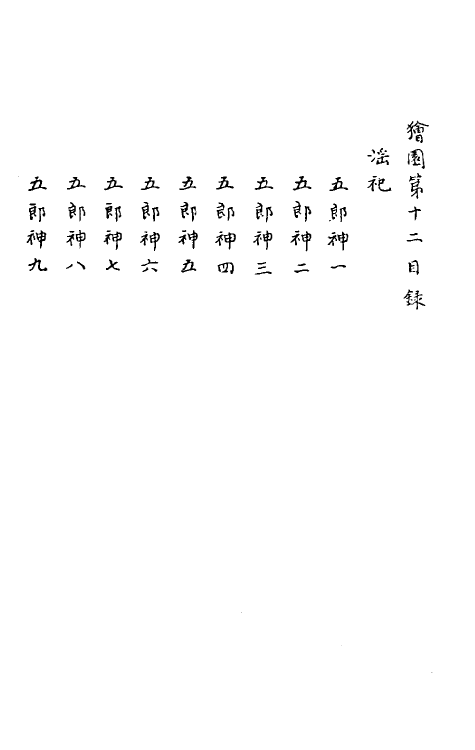 獪園第十二目録
淫祀
五郎神一
五郎神二
五郎神三
五郎神四
五郎神五
五郎神六
五郎神七
五郎神八
五郎神九